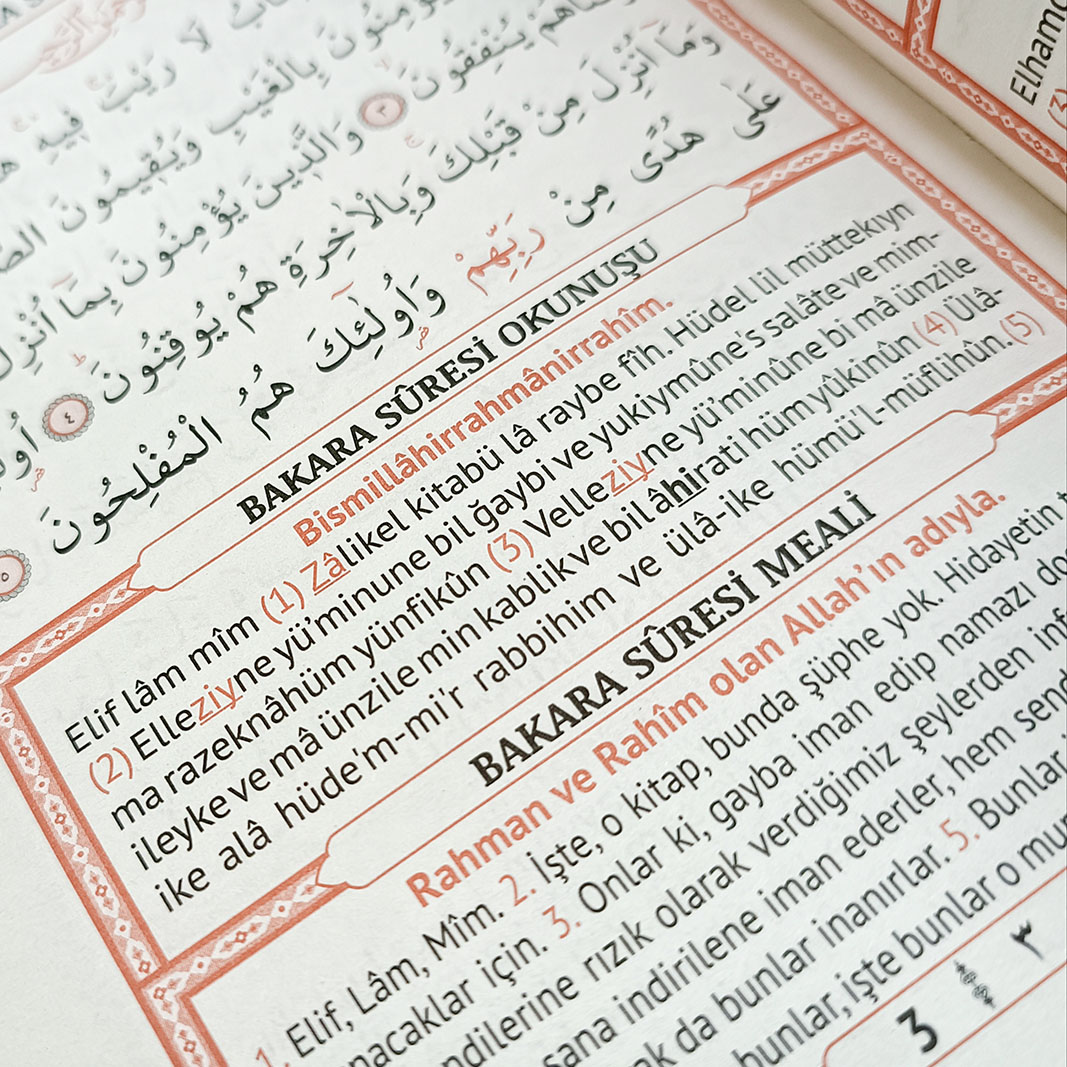 لَا رَيْبَ فِيهِ
يُؤْمِنُونَ بِالْغَيْبِ وَيُقِيمُونَ
يُنْفِقُونَ ٣ وَالَّذِينَ يُؤْمِنُونَ بِمَا أُنْزِلَ
وَمَا أُنْزِلَ مِنْ قَبْلِكَ وَبِالْاٰخِرَةِ هُمْ يُوقِنُونَ ٤
عَلٰى هُدًى مِنْ رَبِّهِمْ وَأُولٰئِكَ هُمُ الْمُفْلِحُونَ ٥
BAKARA SÛRESİ OKUNUŞU
Bismillâhirrahmânirrahîm.
Elif lâm mîm (1) Zâlikel kitabü lâ raybe fîh. Hüdel lil müttekıyn
(2) Elleziyne yü'minune bil ğaybi ve yukiymûne's salâte ve mim-
ma razeknâhüm yünfikûn (3) Velleziyne yü'minûne bi mâ ünzile
ileyke ve mâ ünzile min kablik ve bil âhirati hüm yûkinûn (4) Ülâ-
ike alâ hüde'm-mi'r rabbihim ve ülâ-ike hümü'l-müflihûn. (5)
BAKARA SÛRESİ MEALİ
Rahman ve Rahîm olan Allah'ın adıyla.
1. Elif, Lâm, Mîm. 2. İşte, o kitap, bunda şüphe yok. Hidayetin
nacaklar için. 3. Onlar ki, gayba iman edip namazı
ndilerine rızık olarak verdiğimiz şeylerden
sana indirilene iman ederler, hem
ak da bunlar inanırlar. 5. Bunlar,
bunlar, işte bunlar o
3 ٣
Elham
(3)